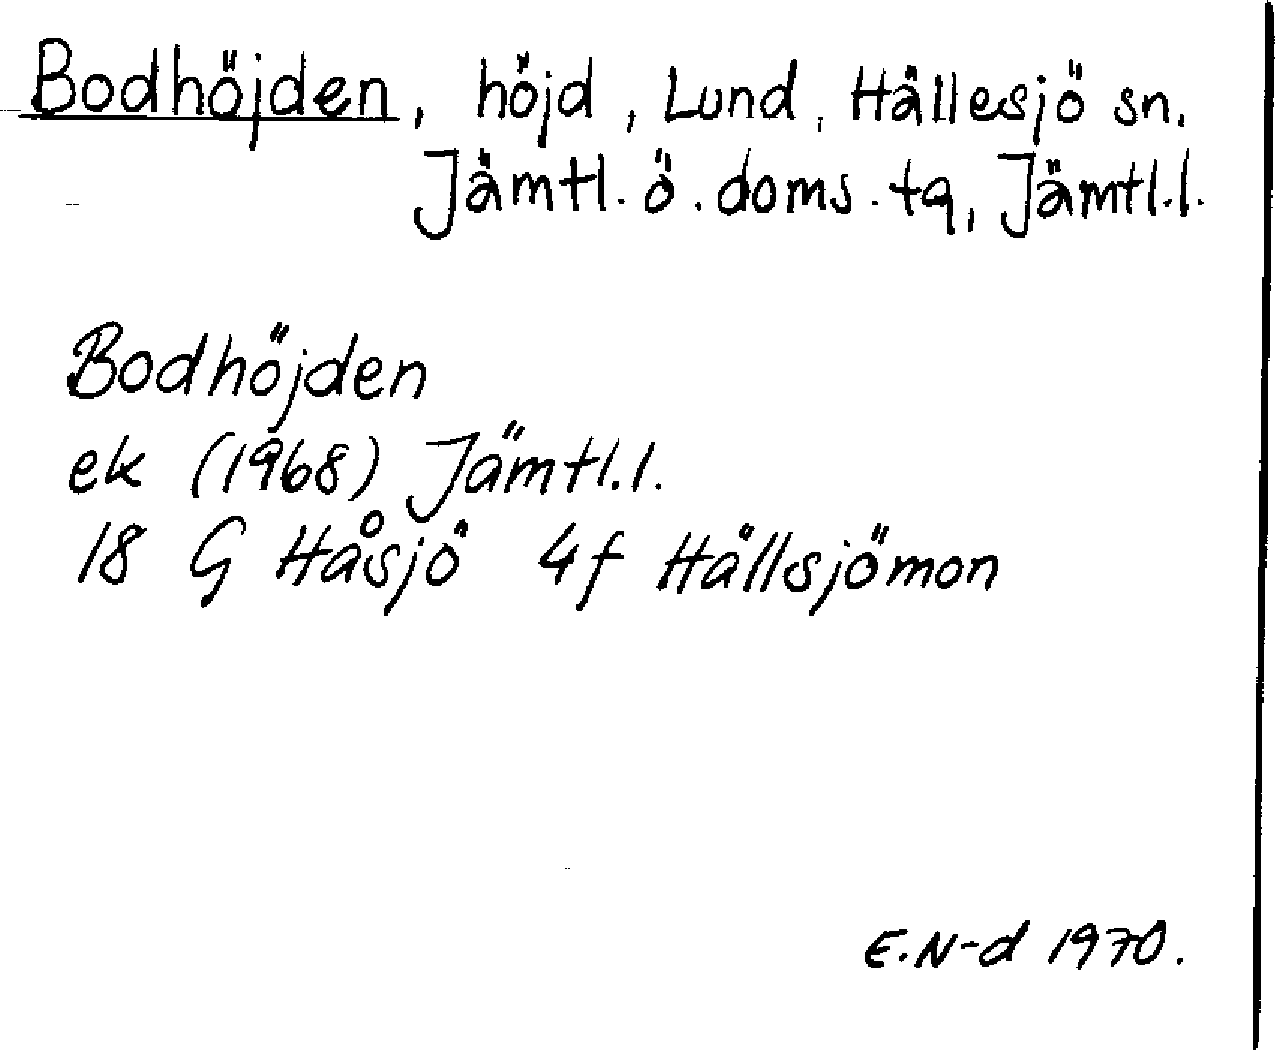 Bodhöjden, höjd, Lund, Hällesjö sn.
Jämtl. ö. doms. tq, Jämtl.l.
Bodhöjden
ek (1968) Jämtl.l.
18 G Håsjö 4f Hällsjömon
E.N-d 1970.